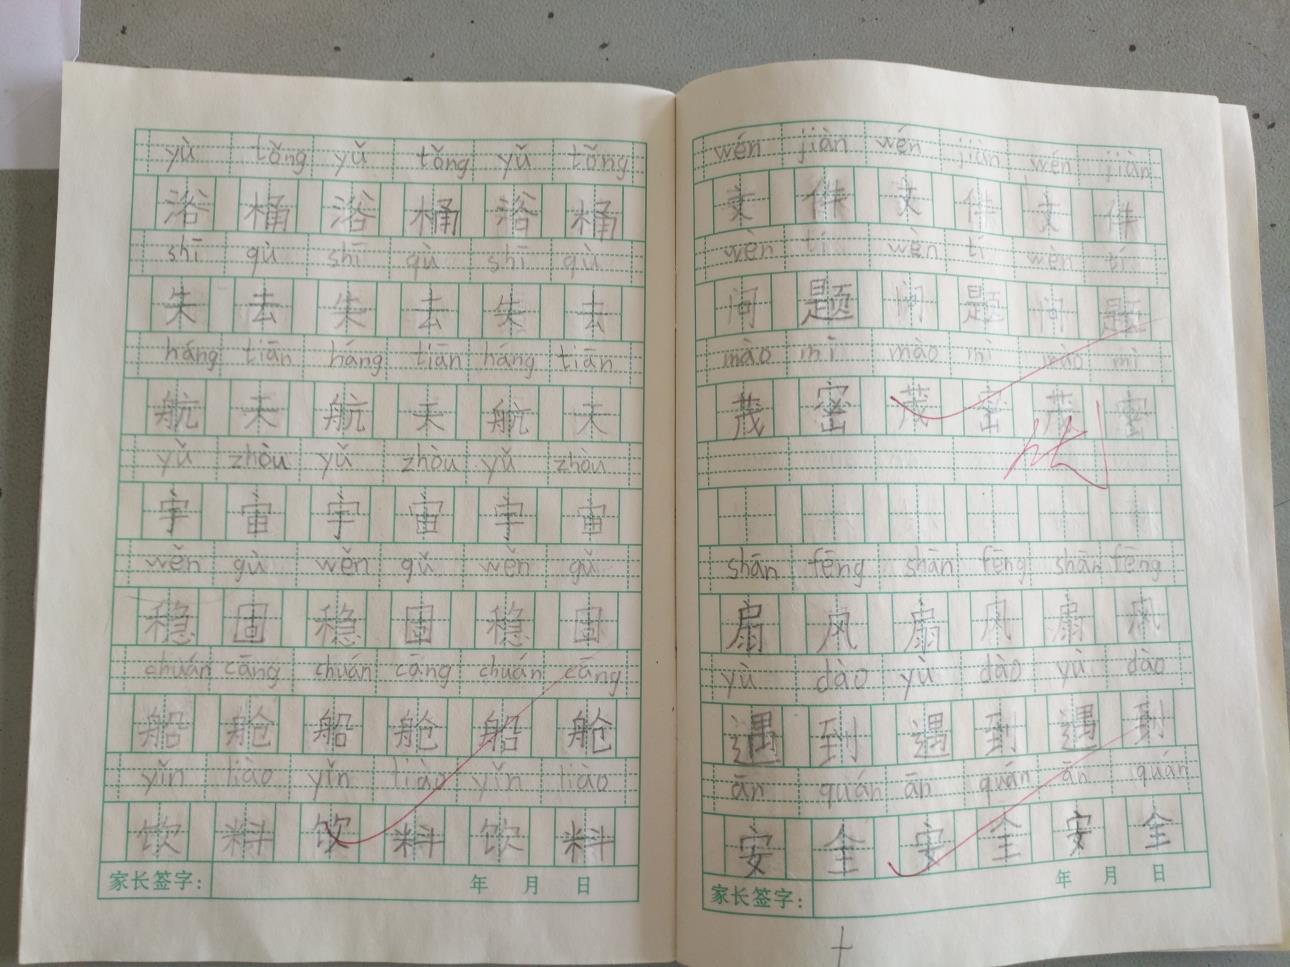 yù tǒng yǔ tǒng yǔ tǒng
浴 桶 浴 桶 浴 桶
shī qù shī qù shī qù
失 去 失 去 失 去
háng tiān háng tiān háng tiān
航 天 航 天 航 天
yǔ zhòu yǔ zhòu yǔ zhòu
宇 宙 宇 宙 宇 宙
wěn gù wěn gù wěn gù
稳 固 稳 固 稳 固
chuán cāng chuán cāng chuán cāng
船 舱 船 舱 船 舱
yǐn liào yǐn liào yǐn liào
饮 料 饮 料 饮 料
家长签字: 年 月 日
wén jiàn wén jiàn wén jiàn
文 件 文 件 文 件
wèn tí wèn tí wèn tí
问 题 问 题 问 题
mào mì mào mì mào mì
茂 密 茂 密 茂 密
shān fēng shān fēng shān fēng
扇 风 扇 风 扇 风
yù dào yù dào yù dào
遇 到 遇 到 遇 到
ān quán ān quán ān quán
安 全 安 全 安 全
家长签字: 年 月 日